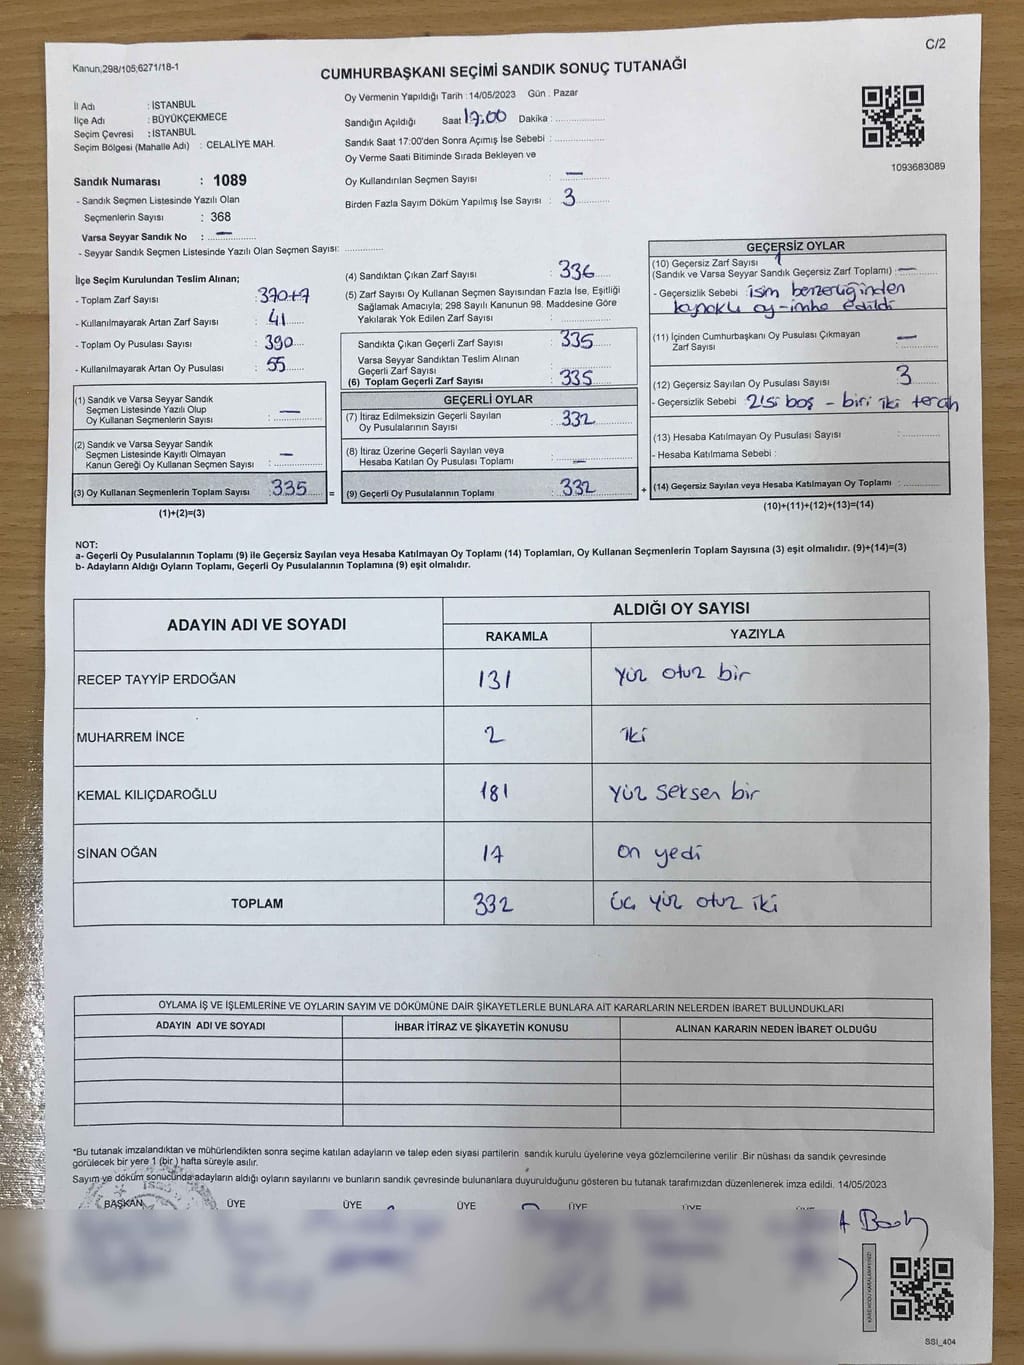 C/2
Kanun;298/105;6271/18-1
CUMHURBAŞKANI SEÇİMİ SANDIK SONUÇ TUTANAĞI
İl Adı : İSTANBUL
İlçe Adı : BÜYÜKÇEKMECE
Seçim Çevresi : İSTANBUL
Seçim Bölgesi (Mahalle Adı) : CELALİYE MAH.
Sandık Numarası : 1089
- Sandık Seçmen Listesinde Yazılı Olan
Seçmenlerin Sayısı : 368
Varsa Seyyar Sandık No : —
- Seyyar Sandık Seçmen Listesinde Yazılı Olan Seçmen Sayısı: ............
Oy Vermenin Yapıldığı Tarih : 14/05/2023 Gün : Pazar
Sandığın Açıldığı Saat 17:00 Dakika : ............
Sandık Saat 17:00'den Sonra Açımış İse Sebebi : ............
Oy Verme Saati Bitiminde Sırada Bekleyen ve
Oy Kullandırılan Seçmen Sayısı : —
Birden Fazla Sayım Döküm Yapılmış İse Sayısı : 3
1093683089
İlçe Seçim Kurulundan Teslim Alınan;
- Toplam Zarf Sayısı : 370+7
- Kullanılmayarak Artan Zarf Sayısı : 41
- Toplam Oy Pusulası Sayısı : 390
- Kullanılmayarak Artan Oy Pusulası : 55
(1) Sandık ve Varsa Seyyar Sandık
Seçmen Listesinde Yazılı Olup
Oy Kullanan Seçmenlerin Sayısı : —
(2) Sandık ve Varsa Seyyar Sandık
Seçmen Listesinde Kayıtlı Olmayan
Kanun Gereği Oy Kullanan Seçmen Sayısı : —
(3) Oy Kullanan Seçmenlerin Toplam Sayısı : 335 =
(1)+(2)=(3)
(4) Sandıktan Çıkan Zarf Sayısı : 336
(5) Zarf Sayısı Oy Kullanan Seçmen Sayısından Fazla İse, Eşitliği
Sağlamak Amacıyla; 298 Sayılı Kanunun 98. Maddesine Göre
Yakılarak Yok Edilen Zarf Sayısı : ............
Sandıkta Çıkan Geçerli Zarf Sayısı : 335
Varsa Seyyar Sandıktan Teslim Alınan
Geçerli Zarf Sayısı : ............
(6) Toplam Geçerli Zarf Sayısı : 335
GEÇERLİ OYLAR
(7) İtiraz Edilmeksizin Geçerli Sayılan
Oy Pusulalarının Sayısı : 332
(8) İtiraz Üzerine Geçerli Sayılan veya
Hesaba Katılan Oy Pusulası Toplamı : —
(9) Geçerli Oy Pusulalarının Toplamı : 332 +
GEÇERSİZ OYLAR
(10) Geçersiz Zarf Sayısı 1
(Sandık ve Varsa Seyyar Sandık Geçersiz Zarf Toplamı) : —
- Geçersizlik Sebebi : isim benzerliğinden
oy-imha edildi
(11) İçinden Cumhurbaşkanı Oy Pusulası Çıkmayan
Zarf Sayısı : —
(12) Geçersiz Sayılan Oy Pusulası Sayısı : 3
- Geçersizlik Sebebi 2'si boş - biri iki tercih
(13) Hesaba Katılmayan Oy Pusulası Sayısı : ............
- Hesaba Katılmama Sebebi :
(14) Geçersiz Sayılan veya Hesaba Katılmayan Oy Toplamı : ............
(10)+(11)+(12)+(13)=(14)
NOT:
a- Geçerli Oy Pusulalarının Toplamı (9) ile Geçersiz Sayılan veya Hesaba Katılmayan Oy Toplamı (14) Toplamları, Oy Kullanan Seçmenlerin Toplam Sayısına (3) eşit olmalıdır. (9)+(14)=(3)
b- Adayların Aldığı Oyların Toplamı, Geçerli Oy Pusulalarının Toplamına (9) eşit olmalıdır.
ADAYIN ADI VE SOYADI
ALDIĞI OY SAYISI
RAKAMLA YAZIYLA
RECEP TAYYİP ERDOĞAN 131 yüz otuz bir
MUHARREM İNCE 2 iki
KEMAL KILIÇDAROĞLU 181 yüz seksen bir
SİNAN OĞAN 17 on yedi
TOPLAM 332 üç yüz otuz iki
OYLAMA İŞ VE İŞLEMLERİNE VE OYLARIN SAYIM VE DÖKÜMÜNE DAİR ŞİKAYETLERLE BUNLARA AİT KARARLARIN NELERDEN İBARET BULUNDUKLARI
ADAYIN ADI VE SOYADI İHBAR İTİRAZ VE ŞİKAYETİN KONUSU ALINAN KARARIN NEDEN İBARET OLDUĞU
*Bu tutanak imzalandıktan ve mühürlendikten sonra seçime katılan adayların ve talep eden siyasi partilerin sandık kurulu üyelerine veya gözlemcilerine verilir .Bir nüshası da sandık çevresinde
görülecek bir yere 1 (bir ) hafta süreyle asılır.
Sayım ve döküm sonucunda adayların aldığı oyların sayılarını ve bunların sandık çevresinde bulunanlara duyurulduğunu gösteren bu tutanak tarafımızdan düzenlenerek imza edildi. 14/05/2023
BAŞKAN ÜYE ÜYE ÜYE ÜYE ÜYE
KAREKODU KARALAMAYINIZ!
SSI_404